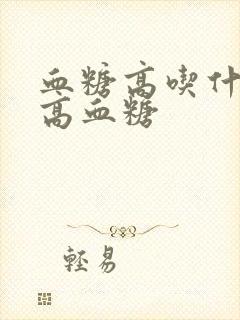 血糖高喫什
高血糖
輕易